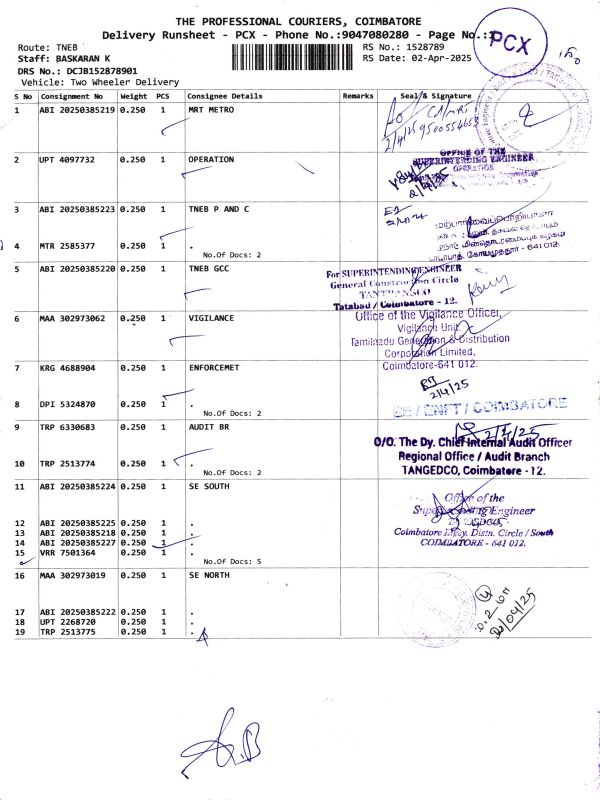 THE PROFESSIONAL COURIERS, COIMBATORE
Delivery Runsheet - PCX - Phone No.:9047080280 - Page No.:1
PCX
Route: TNEB
RS No.: 1528789
Staff: BASKARAN K
RS Date: 02-Apr-2025
DRS No.: DCJB152878901
Vehicle: Two Wheeler Delivery
S No Consignment No Weight PCS Consignee Details Remarks Seal & Signature
1 ABI 20250385219 0.250 1 MRT METRO
2/4/25 9500554652
2 UPT 4097732 0.250 1 OPERATION
OFFICE OF THE
SUPERINTENDING ENGINEER
OPERATION
3 ABI 20250385223 0.250 1 TNEB P AND C
4 MTR 2585377 0.250 1 .
No.Of Docs: 2
5 ABI 20250385220 0.250 1 TNEB GCC
For SUPERINTENDING ENGINEER
General Construction Circle
TANTRANSCO
Tatabad / Coimbatore - 12.
6 MAA 302973062 0.250 1 VIGILANCE
Office of the Vigilance Officer,
Vigilance Unit,
Tamilnadu Generation & Distribution
Corporation Limited,
Coimbatore-641 012.
7 KRG 4688904 0.250 1 ENFORCEMET
2/4/25
8 DPI 5324870 0.250 1 .
No.Of Docs: 2
EE / ENFT / COIMBATORE
9 TRP 6330683 0.250 1 AUDIT BR
O/O. The Dy. Chief Internal Audit Officer
Regional Office / Audit Branch
TANGEDCO, Coimbatore - 12.
10 TRP 2513774 0.250 1 .
No.Of Docs: 2
11 ABI 20250385224 0.250 1 SE SOUTH
Office of the
Superintending Engineer
Coimbatore Elecy. Distn. Circle / South
COIMBATORE - 641 012.
12 ABI 20250385225 0.250 1 .
13 ABI 20250385218 0.250 1 .
14 ABI 20250385227 0.250 1 .
15 VRR 7501364 0.250 1 .
No.Of Docs: 5
16 MAA 302973019 0.250 1 SE NORTH
17 ABI 20250385222 0.250 1 .
18 UPT 2268720 0.250 1 .
19 TRP 2513775 0.250 1 .